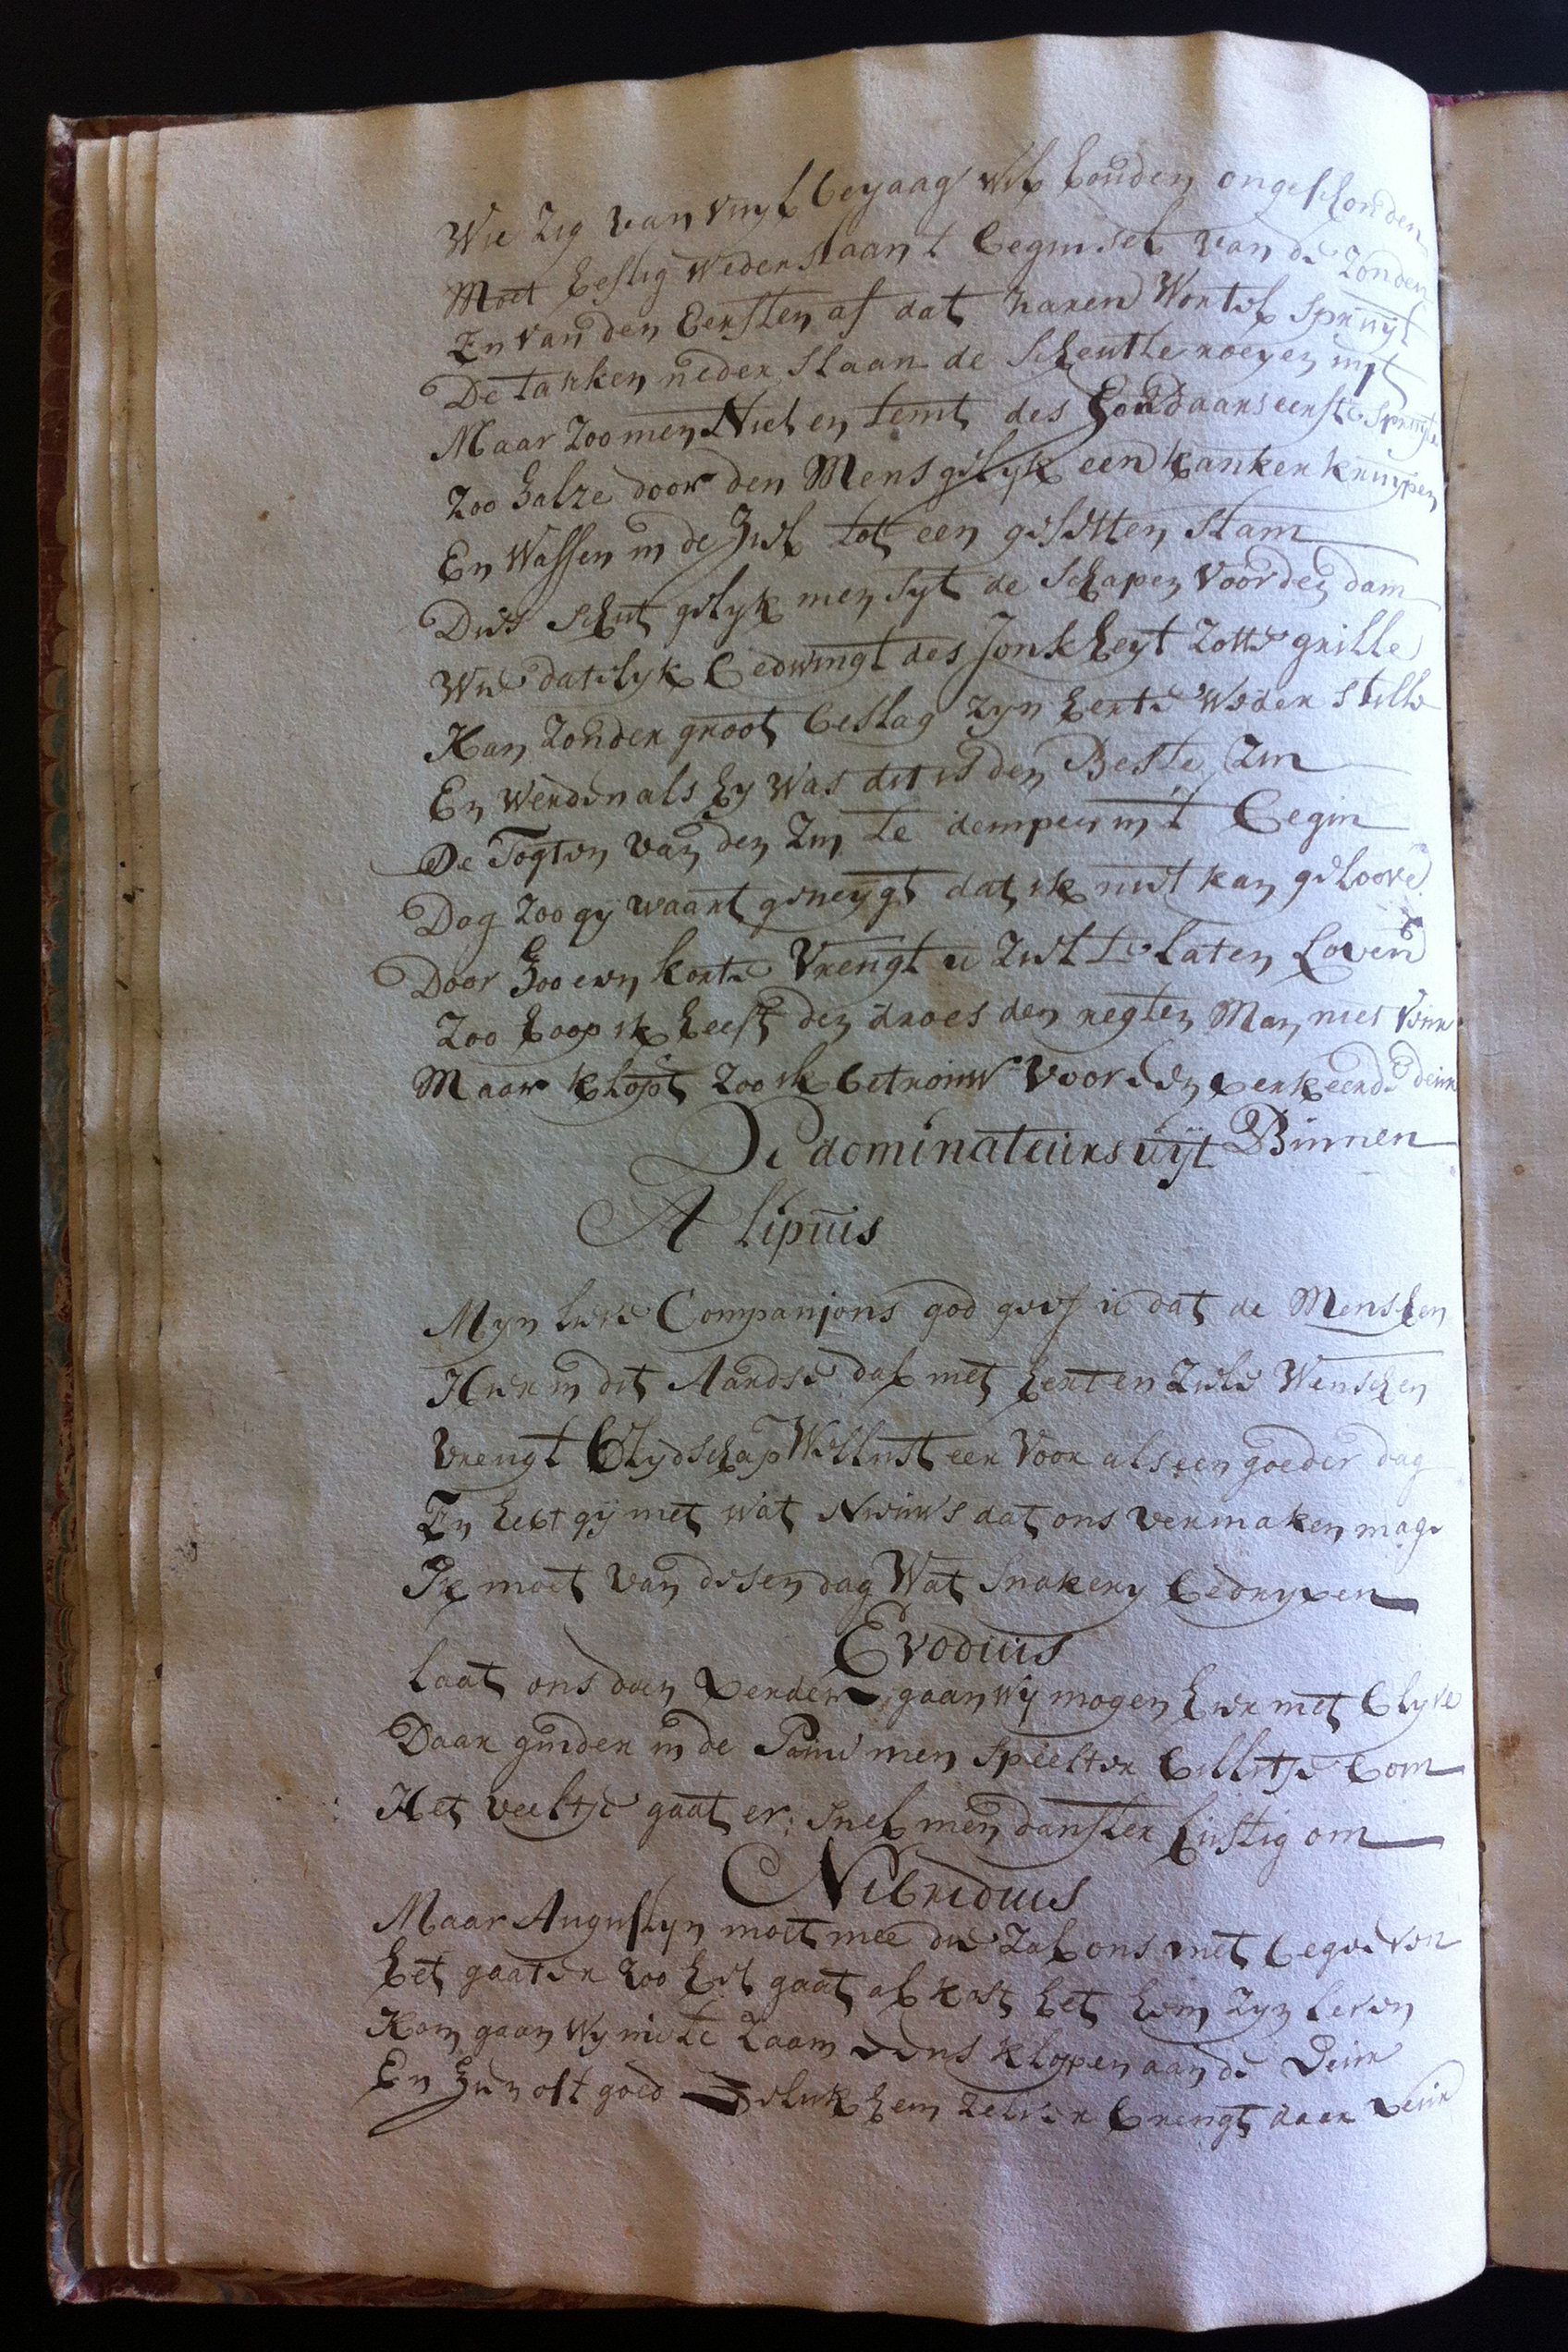 Wie zig van vuyl bejaag wil houden ongeschonden
Moet hestig wederstaan t beginsel van de zonden
En van den Eersten af dat haren Wortel spruijt
De tacken neder slaan de scheutte roeyen uyt
Maar zoo men Niet en temt des Houdaars eerste spruyten
Zoo halze door den Mens gelyk een kanker kruypen
En Wassen in de Ziel tot een gesetten stam
Dus schut gelyk men syt de schapen voor den dam
Wie datelyk bedwingt des Jonkheyt zotte grille
Kan zonder groot beslag zyn herte weder stille
En werden als hy was dit is den Beste zin
De Togten van den zin te dempen in t begin
Dog zoo gy waart geneygt dat ik niet kan geloove
Door zoo een korte vreugt u ziel te laten rooven
Zoo hoop ik heeft den droes den regten Man niet veur
Maar klopt zoo ik betrouw voor den verkeerde deur
De dominateurs uijt Binnen
Alipius
Myn lieve Companjons god geef u dat de Menschen
Hier in dit Aardse dal met hert en ziele Wenschen
Vreugt blydschap Wellust eer Voor als een goeder dag
En hebt gij niet wat Nieuws dat ons vermaken mag
Ik moet van desen dag Wat snakery bedryven
Evodius
Laat ons dan verder gaan wij mogen hier niet blyve
Daar ginder in de Panne men speelter billetje bom
Het veeltje gaat er snel men danster lustig om
Nibridius
Maar Augustyn moet mee die zal ons niet begeeven
Het gaater zoo het gaat al kost het hem zyn leven
Kom gaan wy nu te zaam eens kloppen aan de Deur
En zien oft goed geluk hem zelver brengt daar veur